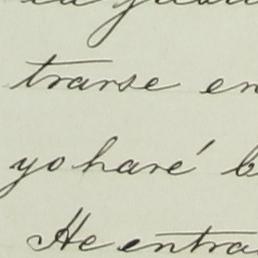 trarse en
yo haré
He entra